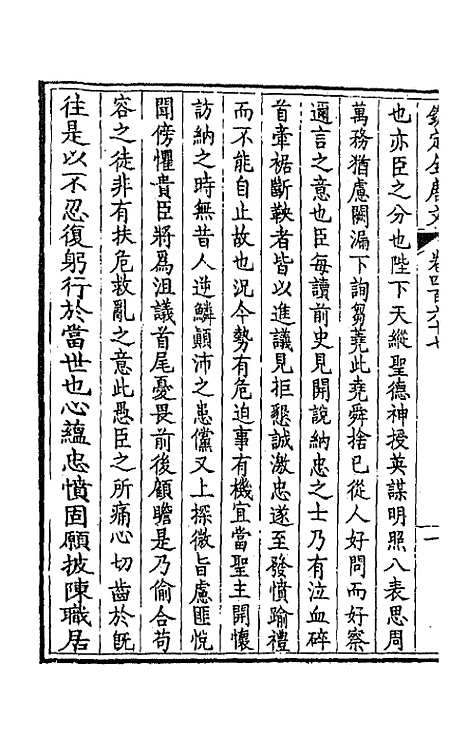 欽定全唐文 卷四百六十七 一
也亦臣之分也陛下天縱聖德神授英謀明照八表思周
萬務猶慮闕漏下詢芻蕘此堯舜捨已從人好問而好察
邇言之意也臣每讀前史見開說納忠之士乃有泣血碎
首牽裾斷鞅者皆以進議見拒懇誠激忠遂至發憤踰禮
而不能自止故也況今勢有危迫事有機宜當聖主開懷
訪納之時無昔人逆鱗顚沛之患儻又上探微旨慮匪悅
聞傍懼貴臣將爲沮議首尾憂畏前後顧瞻是乃偷合苟
容之徒非有扶危救亂之意此愚臣之所痛心切齒於旣
往是以不忍復躬行於當世也心蘊忠憤固願披陳職居